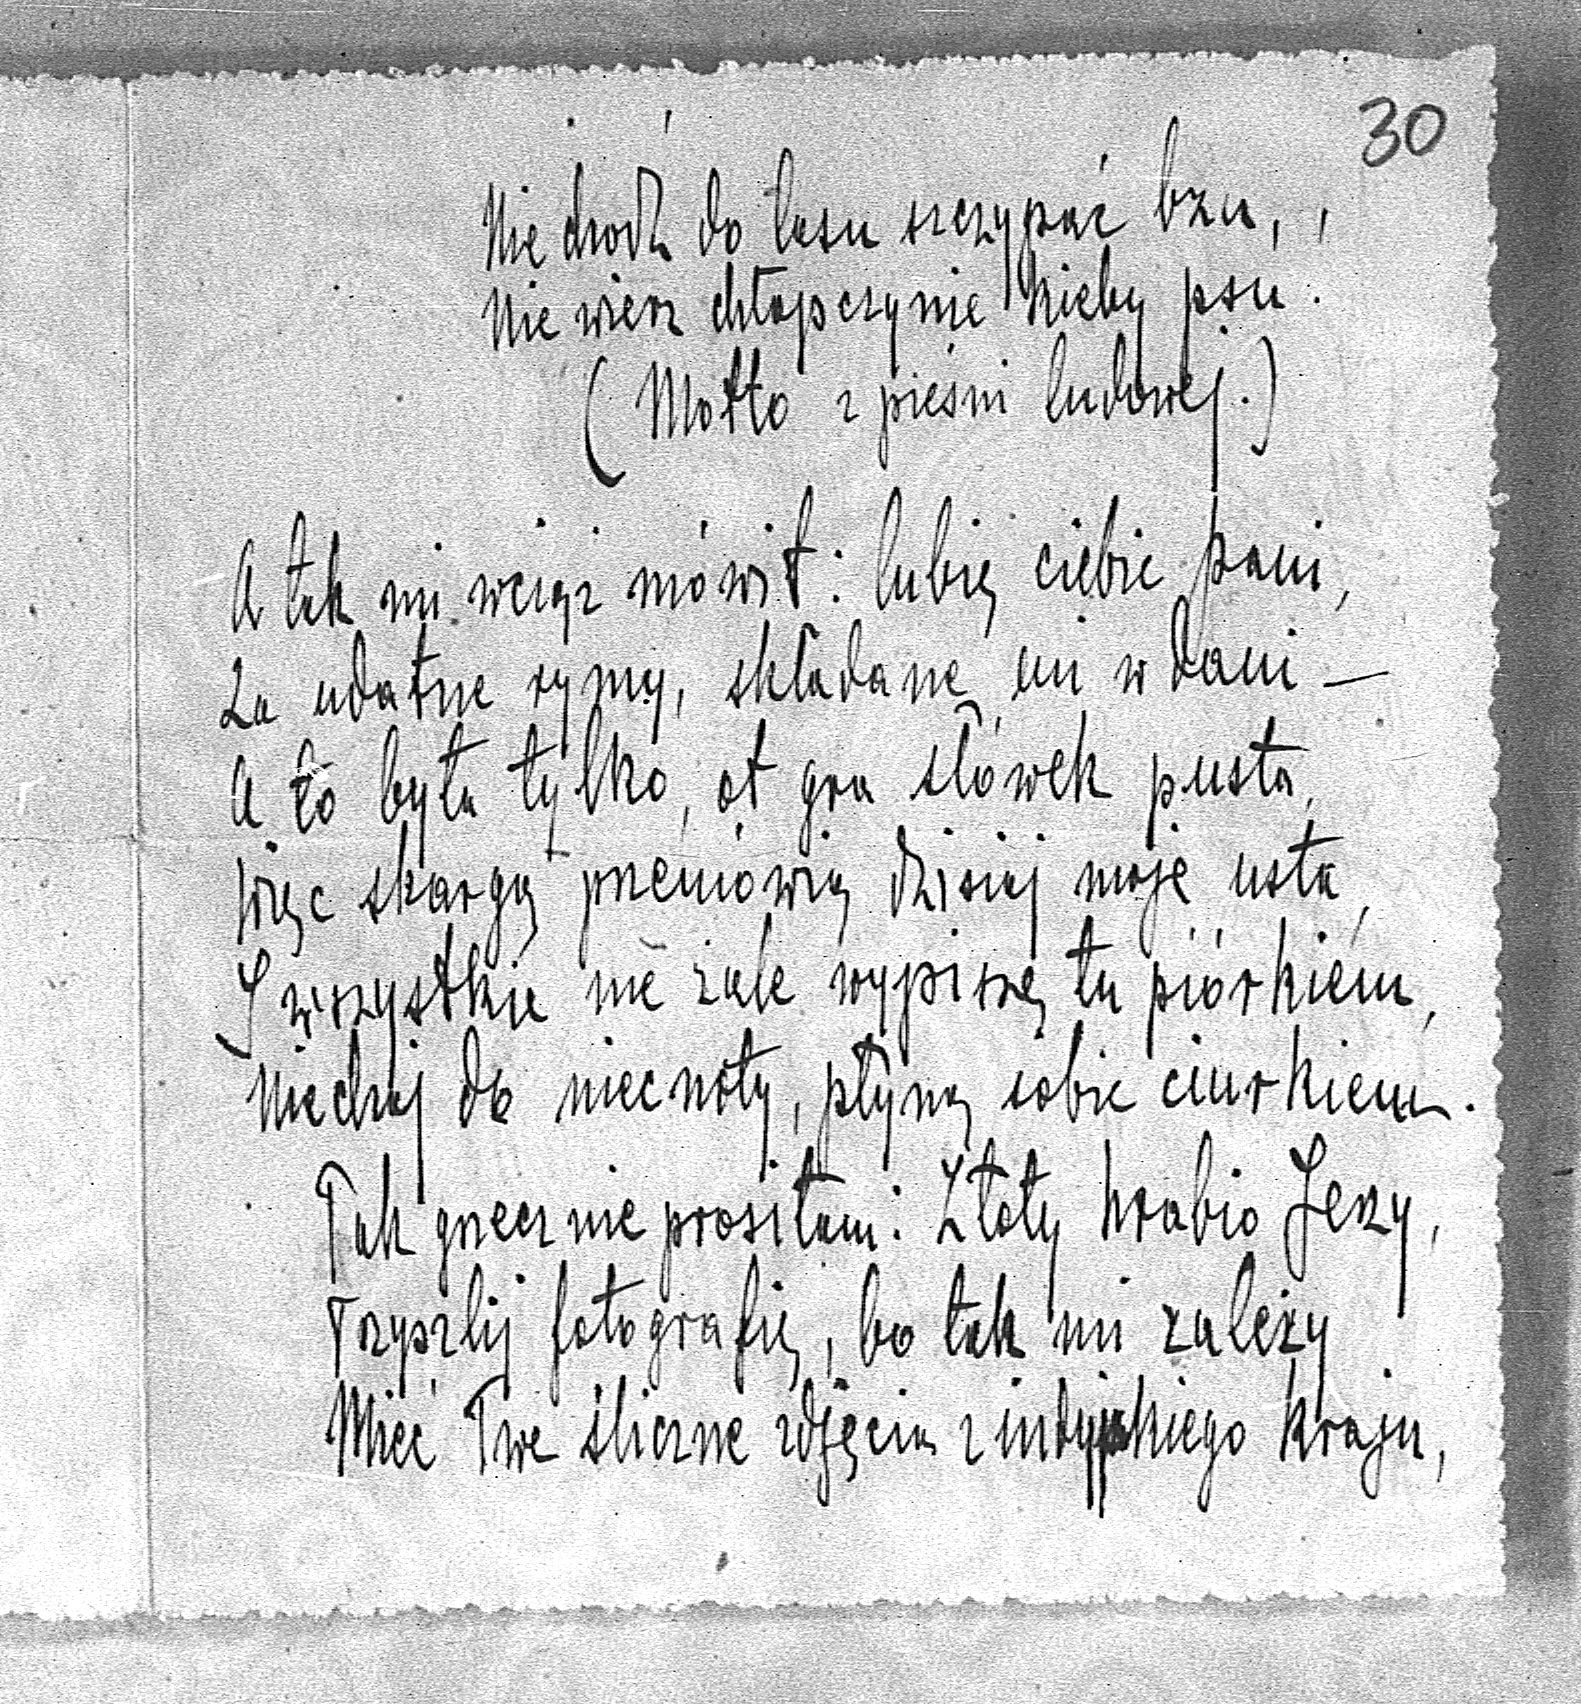 30
Nie chodź do lasu szczypać bzu,
Nie wierz chłopczynie kieby psu.
(Motto z pieśni ludowej.)
A tak mi wciąż mówił: lubię ciebie pani,
Za udatne rymy, składane mi w dani —
A to była tylko, ot gra słówek pusta,
Więc skargę przemówią dzisiaj moje usta,
I wszystkie me żale wypiszę tu piórkiem,
Niechaj do niecnoty, płyną sobie ciurkiem.
Tak grzecznie prosiłam: Złoty hrabio Jerzy,
Przyszlij fotografię, bo tak mi zależy
Mieć Twe śliczne zdjęcia z indyjskiego kraju,